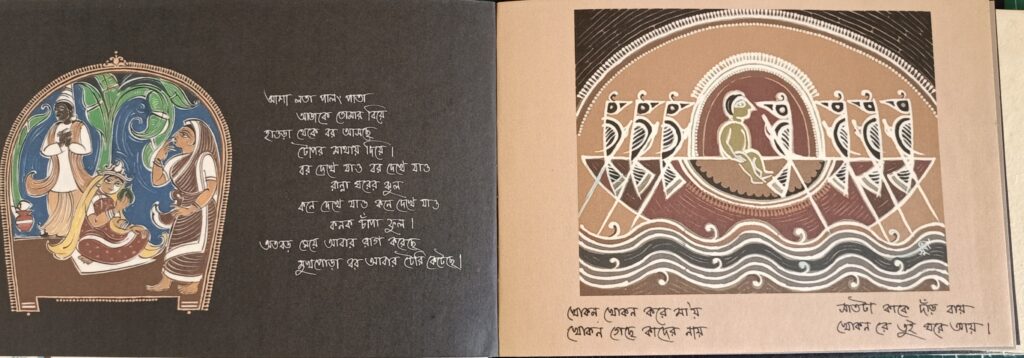 আশা লতা পালং পাতা
আজকে তোমার বিয়ে
হাওড়া থেকে বর আসছে
টোপর মাথায় দিয়ে।
বর দেখে যাও বর দেখে যাও
রান্না ঘরের ঝুল
কনে দেখে যাও কনে দেখে যাও
কনক চাঁপা ফুল।
অতবড় মেয়ে আবার রাগ করেছে
মুখপোড়া বর আবার টেরি কেটেছে।
খোকন খোকন করে মায়
খোকন গেছে কাদের নায়
সাতটা কাকে দাঁড় বায়
খোকন রে তুই ঘরে আয়।